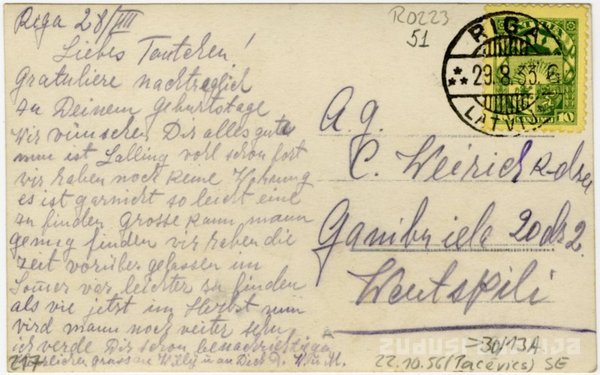 Riga 28/VIII
Liebes Tantchen!
Gratuliere nachträglich
zu Deinem Geburtstage
Wir wünschen Dir alles gute
nun ist Lalling wohl schon fort
wir haben noch keine Wohnung
es ist garnicht so leicht eine
zu finden grosse kann mann
genug finden wir haben die
Zeit vorüber gelassen im
Somer war leichter zu finden
als wie jetzt im Herbst nun
wird mann noch weiter sehn
ich werde Dir schon benachrichtigen
grüsse an Willy u an Dich
217
R0223
51
RIGA
29.8.33
LATVIJA
10
A. g.
C. Weirich kdze
Gambju iele 20 dz 2.
Wentspili
=30/13A
22.10.56 (Pacēvics) SE
zudusilatvija